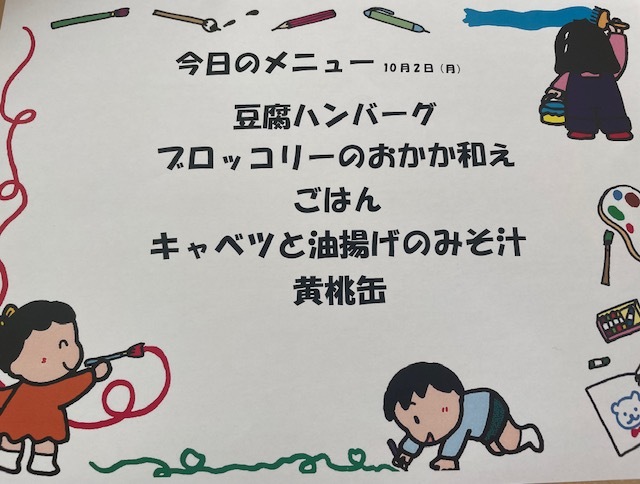 今日のメニュー 10月2日（月）
豆腐ハンバーグ
ブロッコリーのおかか和え
ごはん
キャベツと油揚げのみそ汁
黄桃缶